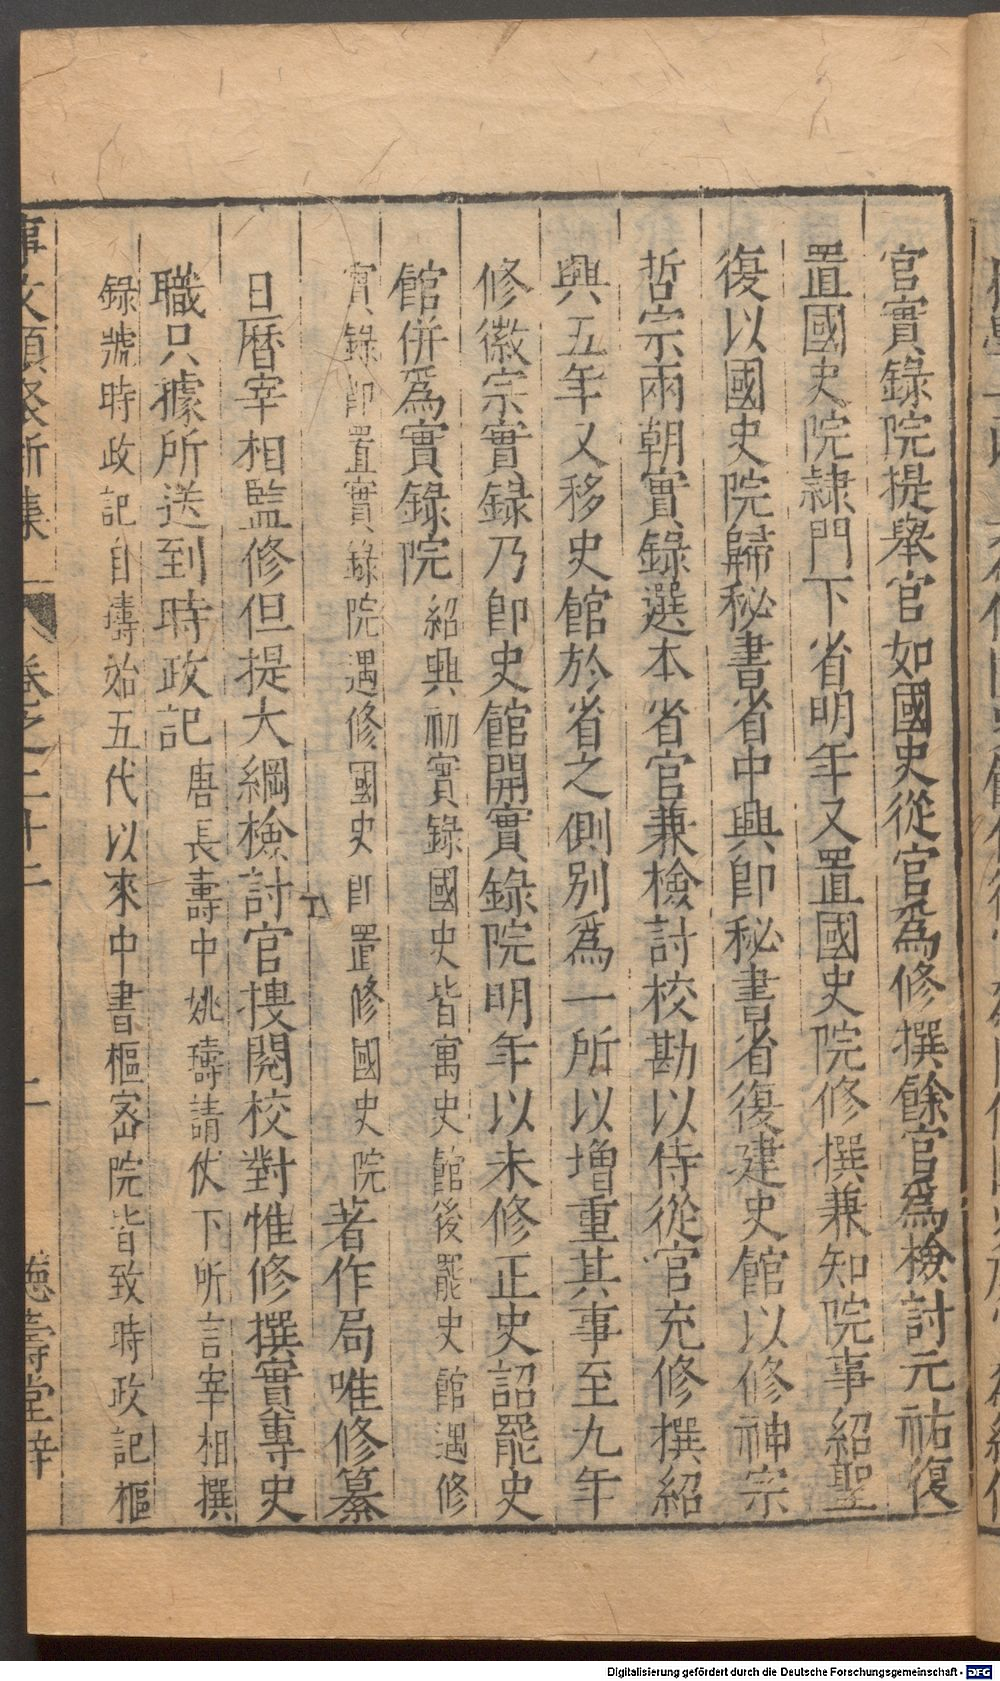 官實錄院提舉官如國史從官爲修撰餘官爲檢討元祐復
置國史院隷門下省明年又置國史院修撰兼知院事紹聖
復以國史院歸秘書省中興卽秘書省復建史館以修神宗
哲宗兩朝實錄選本省官兼檢討校勘以侍從官充修撰紹
興五年又移史館於省之側别爲一所以增重其事至九年
修徽宗實録乃卽史館開實錄院明年以未修正史詔罷史
館併爲實錄院紹興初實錄國史皆寓史館後罷史館遇修
實錄卽置實錄院遇修國史卽置修國史院著作局唯修纂
日曆宰相監修但提大綱檢討官搜閱校對惟修撰實專史
職只據所送到時政記唐長壽中姚璹請仗下所言宰相撰
錄號時政記自璹始五代以來中書樞宻院皆致時政記樞
事文類聚新集 卷之二十二 二 德壽堂梓
Digitalisierung gefördert durch die Deutsche Forschungsgemeinschaft - DFG